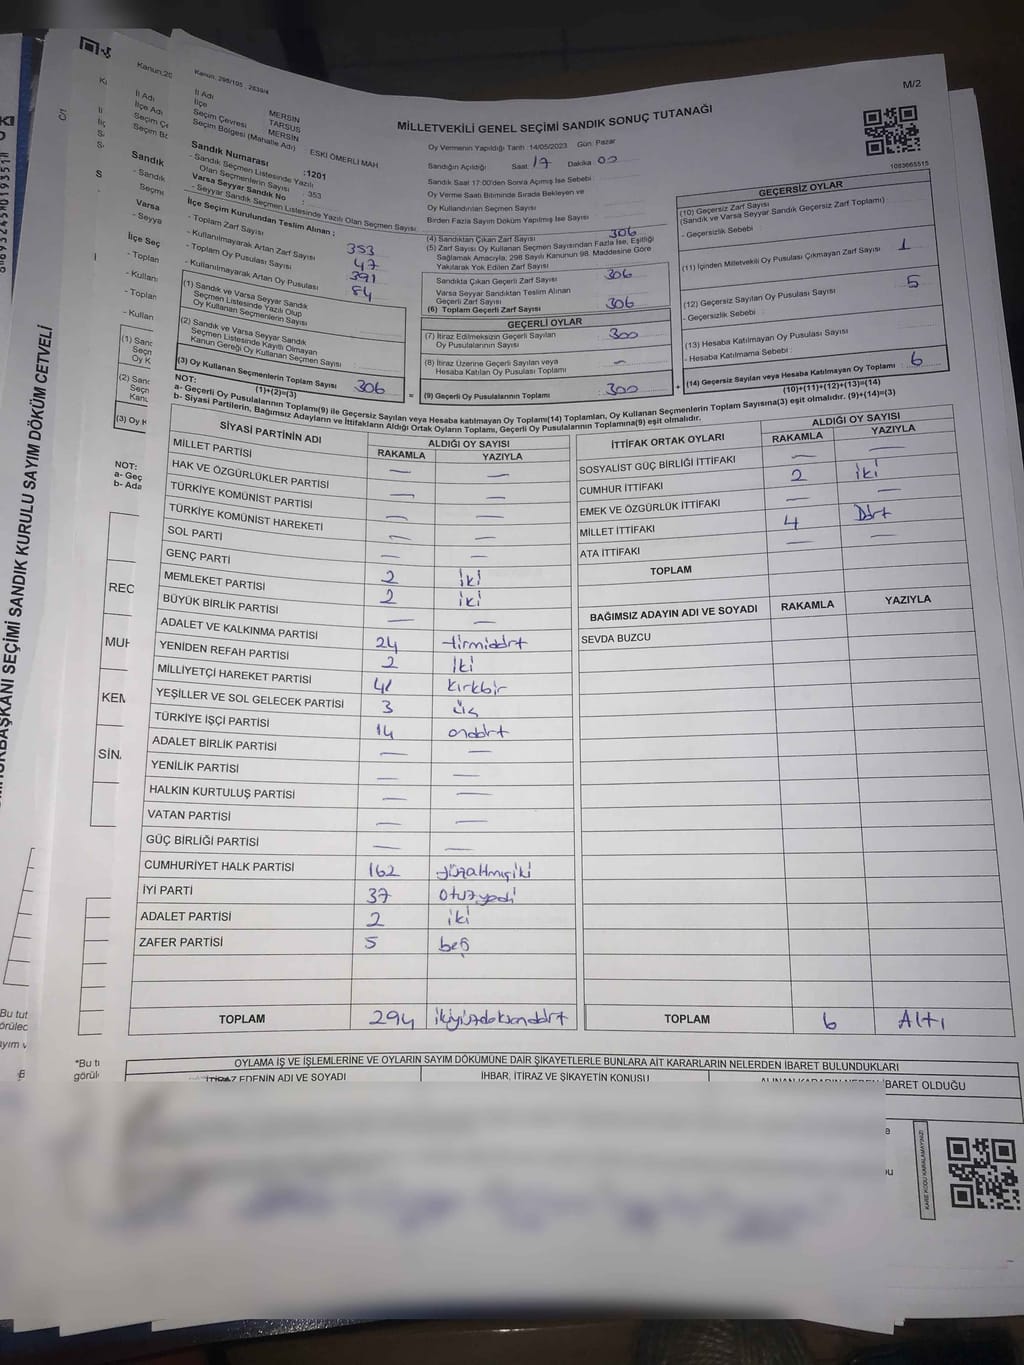 M/2
Kanun, 298/105 , 2839/4
MİLLETVEKİLİ GENEL SEÇİMİ SANDIK SONUÇ TUTANAĞI
1083665515
İl Adı MERSİN
İlçe TARSUS
Seçim Çevresi MERSİN
Seçim Bölgesi (Mahalle Adı) : ESKİ ÖMERLİ MAH
Sandık Numarası :1201
- Sandık Seçmen Listesinde Yazılı
Olan Seçmenlerin Sayısı : 353
Varsa Seyyar Sandık No :
- Seyyar Sandık Seçmen Listesinde Yazılı Olan Seçmen Sayısı:
İlçe Seçim Kurulundan Teslim Alınan ;
- Toplam Zarf Sayısı 353
- Kullanılmayarak Artan Zarf Sayısı 47
- Toplam Oy Pusulası Sayısı 391
- Kullanılmayarak Artan Oy Pusulası 84
(1) Sandık ve Varsa Seyyar Sandık
Seçmen Listesinde Yazılı Olup
Oy Kullanan Seçmenlerin Sayısı
(2) Sandık ve Varsa Seyyar Sandık
Seçmen Listesinde Kayıtlı Olmayan
Kanun Gereği Oy Kullanan Seçmen Sayısı :
(3) Oy Kullanan Seçmenlerin Toplam Sayısı 306
(1)+(2)=(3)
Oy Vermenin Yapıldığı Tarih :14/05/2023 Gün: Pazar
Sandığın Açıldığı Saat: 17 Dakika 00
Sandık Saat 17:00'den Sonra Açılmış İse Sebebi :
Oy Verme Saati Bitiminde Sırada Bekleyen ve
Oy Kullandırılan Seçmen Sayısı
Birden Fazla Sayım Döküm Yapılmış İse Sayısı
(4) Sandıktan Çıkan Zarf Sayısı 306
(5) Zarf Sayısı Oy Kullanan Seçmen Sayısından Fazla İse, Eşitliği
Sağlamak Amacıyla, 298 Sayılı Kanunun 98. Maddesine Göre
Yakılarak Yok Edilen Zarf Sayısı
Sandıkta Çıkan Geçerli Zarf Sayısı 306
Varsa Seyyar Sandıktan Teslim Alınan
Geçerli Zarf Sayısı
(6) Toplam Geçerli Zarf Sayısı 306
GEÇERLİ OYLAR
(7) İtiraz Edilmeksizin Geçerli Sayılan
Oy Pusulalarının Sayısı 300
(8) İtiraz Üzerine Geçerli Sayılan veya
Hesaba Katılan Oy Pusulası Toplamı —
(9) Geçerli Oy Pusulalarının Toplamı : 300
GEÇERSİZ OYLAR
(10) Geçersiz Zarf Sayısı
(Sandık ve Varsa Seyyar Sandık Geçersiz Zarf Toplamı)
- Geçersizlik Sebebi :
(11) İçinden Milletvekili Oy Pusulası Çıkmayan Zarf Sayısı 1
(12) Geçersiz Sayılan Oy Pusulası Sayısı 5
- Geçersizlik Sebebi :
(13) Hesaba Katılmayan Oy Pusulası Sayısı
- Hesaba Katılmama Sebebi :
(14) Geçersiz Sayılan veya Hesaba Katılmayan Oy Toplamı : 6
(10)+(11)+(12)+(13)=(14)
NOT:
a- Geçerli Oy Pusulalarının Toplamı(9) ile Geçersiz Sayılan veya Hesaba katılmayan Oy Toplamı(14) Toplamları, Oy Kullanan Seçmenlerin Toplam Sayısına(3) eşit olmalıdır. (9)+(14)=(3)
b- Siyasi Partilerin, Bağımsız Adayların ve İttifakların Aldığı Ortak Oyların Toplamı, Geçerli Oy Pusulalarının Toplamına(9) eşit olmalıdır.
SİYASİ PARTİNİN ADI ALDIĞI OY SAYISI
RAKAMLA YAZIYLA
MİLLET PARTİSİ — —
HAK VE ÖZGÜRLÜKLER PARTİSİ
TÜRKİYE KOMÜNİST PARTİSİ — —
TÜRKİYE KOMÜNİST HAREKETİ — —
SOL PARTİ — —
GENÇ PARTİ — —
MEMLEKET PARTİSİ 2 iki
BÜYÜK BİRLİK PARTİSİ 2 iki
ADALET VE KALKINMA PARTİSİ — —
YENİDEN REFAH PARTİSİ 24 tirmidört
MİLLİYETÇİ HAREKET PARTİSİ 2 İki
YEŞİLLER VE SOL GELECEK PARTİSİ 41 kırkbir
TÜRKİYE İŞÇİ PARTİSİ 3 üç
14 ondört
ADALET BİRLİK PARTİSİ — —
YENİLİK PARTİSİ — —
HALKIN KURTULUŞ PARTİSİ — —
VATAN PARTİSİ — —
GÜÇ BİRLİĞİ PARTİSİ — —
CUMHURİYET HALK PARTİSİ 162 yüzaltmışiki
İYİ PARTİ 37 otuzyedi
ADALET PARTİSİ 2 iki
ZAFER PARTİSİ 5 beş
TOPLAM 294 ikiyüzdoksandört
İTTİFAK ORTAK OYLARI ALDIĞI OY SAYISI
RAKAMLA YAZIYLA
SOSYALİST GÜÇ BİRLİĞİ İTTİFAKI — —
CUMHUR İTTİFAKI 2 iki
EMEK VE ÖZGÜRLÜK İTTİFAKI — —
MİLLET İTTİFAKI 4 Dört
ATA İTTİFAKI — —
TOPLAM
BAĞIMSIZ ADAYIN ADI VE SOYADI RAKAMLA YAZIYLA
SEVDA BUZCU
TOPLAM 6 Altı
OYLAMA İŞ VE İŞLEMLERİNE VE OYLARIN SAYIM DÖKÜMÜNE DAİR ŞİKAYETLERLE BUNLARA AİT KARARLARIN NELERDEN İBARET BULUNDUKLARI
İTİRAZ EDENİN ADI VE SOYADI İHBAR, İTİRAZ VE ŞİKAYETİN KONUSU ALINAN KARARIN NEDEN İBARET OLDUĞU
KARE KODU KARALAMAYINIZ!
BAŞKANI SEÇİMİ SANDIK KURULU SAYIM DÖKÜM CETVELİ
C/1
REC
MUH
KEM
SİN